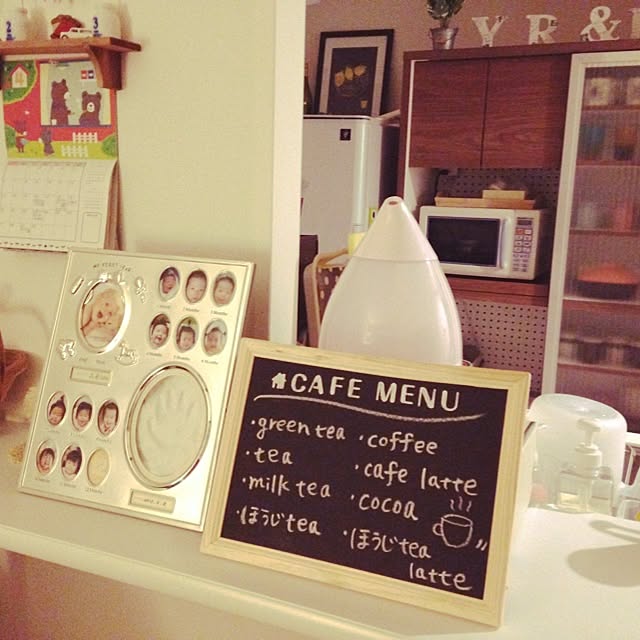 Y R &
4
MY FIRST YEAR
CAFE MENU
・green tea
・tea
・milk tea
・ほうじtea
・coffee
・cafe latte
・cocoa
・ほうじtea
latte